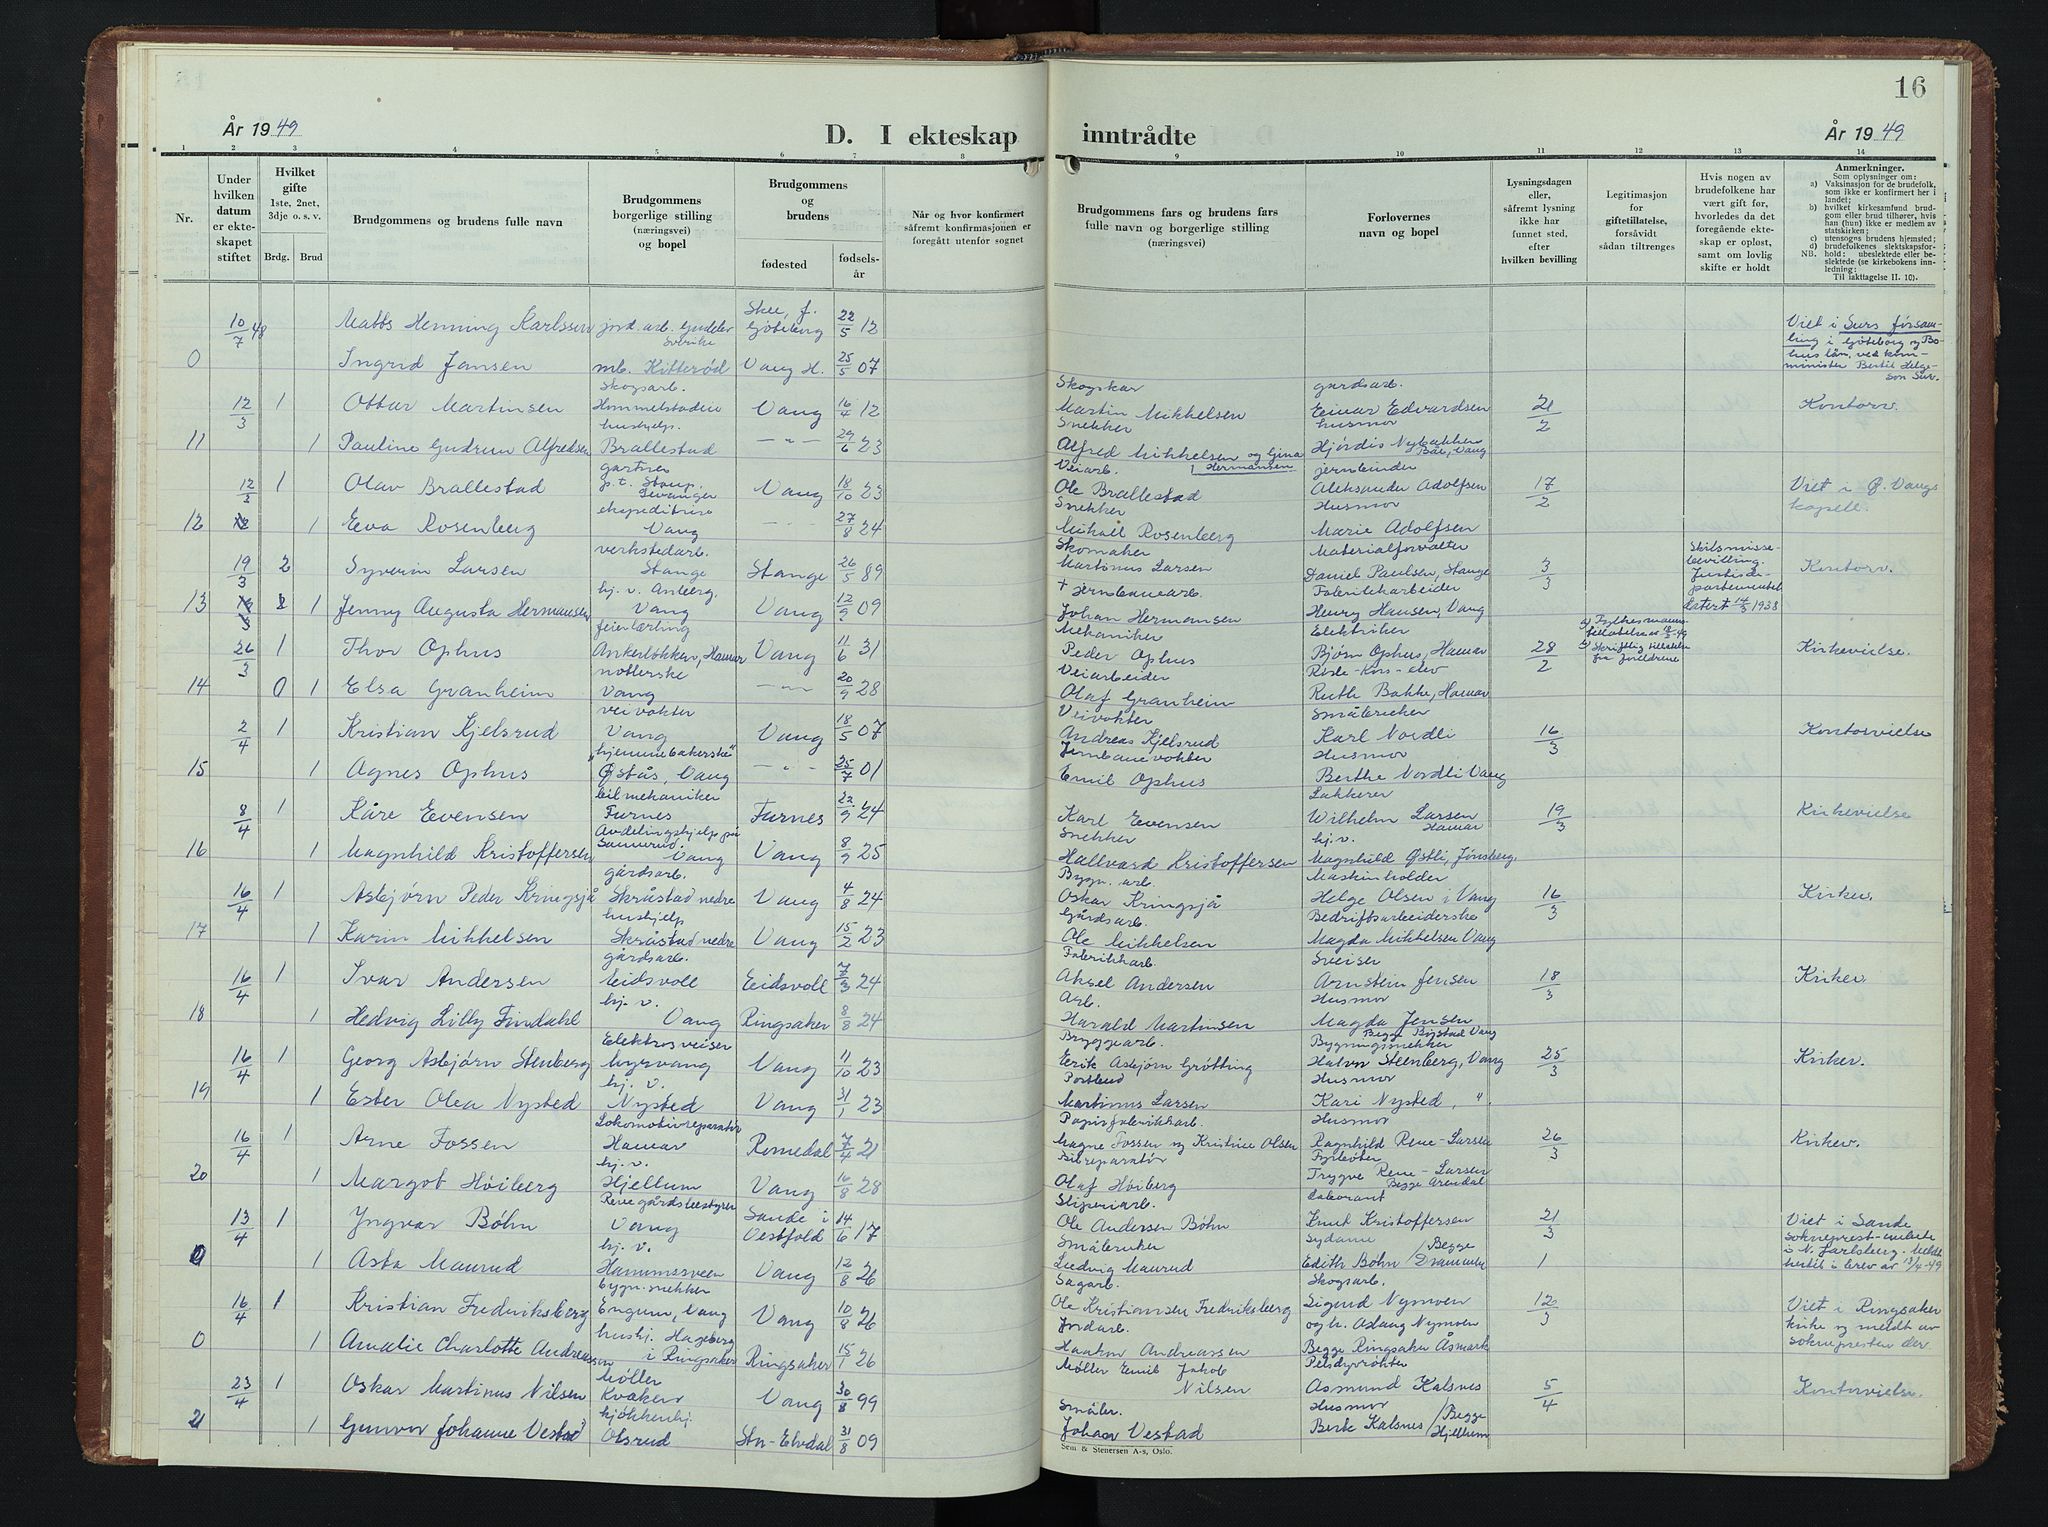 16
År 1949
D. I ekteskap
inntrådte
År 1949
1 2 3 4 5 6 7 8 9 10 11 12 13 14
Nr.
Under hvilken datum er ekteskapet stiftet
Hvilket gifte 1ste, 2net, 3dje o. s. v.
Brdg. Brud
Brudgommens og brudens fulle navn
Brudgommens borgerlige stilling (næringsvei) og bopel
Brudgommens og brudens
fødested
fødsels-år
Når og hvor konfirmert såfremt konfirmasjonen er foregått utenfor sognet
Brudgommens fars og brudens fars fulle navn og borgerlige stilling (næringsvei)
Forlovernes navn og bopel
Lysningsdagen eller, såfremt lysning ikke har funnet sted, efter hvilken bevilling
Legitimasjon for giftetillatelse, forsåvidt sådan tiltrenges
Hvis nogen av brudefolkene har vært gift før, hvorledes da det foregående ekteskap er opløst, samt om lovlig skifte er holdt
Anmerkninger.
Som oplysninger om:
a) Vaksinasjon for de brudefolk, som ikke er konfirmert her i landet;
b) hvilket kirkesamfund brudgom eller brud tilhører, hvis han (hun) ikke er medlem av statskirken;
c) utensogns brudens hjemsted;
d) brudefolkenes slektskapsforhold: ubeslektede eller beslektede (se kirkebokens innledning;
NB.
Til iakttagelse II. 10).
10/7 48 Matts Henning Karlssen jord.arb. Sverike Skee, f. Göteborg 22/5 12
Viet i Surs församling i Göteborg og Bohus län, ved komminister Bertil Helgeson Sur.
0 Ingrid Jansen Kitterød Vang H. 25/5 07
12/3 1 Ottar Martinsen Skogsarb. Hommelstadeie Vang 16/4 12 Skogskar Martin Mikkelsen gardsarb. Einar Edvardsen 21/2 Kontorv.
11 1 Pauline Gudrun Alfredsen hushjelp. Brallestad — " — 29/6 23 Snekker Alfred Mikkelsen og Gina Hermansen husmor Hjørdis Nybakken Vang
12/3 1 Olav Brallestad gartner p.t. Staup, Levanger Vang 18/10 23 Veiarb. Ole Brallestad jernbinder Aleksander Adolfsen 17/2 Viet i Ø. Vangs kapell.
12 1 Eva Rosenberg ekspeditrise Vang — " — 27/8 24 Snekker Mikael Rosenberg Husmor Marie Adolfsen
19/3 2 Syverin Larsen verkstedarb. Stange Stange 26/5 89 Skomaker Martinus Larsen Materialforvalter Daniel Paulsen, Stange 3/3 Skilsmissebevilling Justisdepartementet datert 14/5 1938 Kontorv.
13 1 Jenny Augusta Hermansen hj. v. Vang Vang 12/9 09 + jernbanearb. Johan Hermansen Fabrikkarbeider Henry Hansen, Vang
26/3 1 Thor Ophus feierlærling Ankerløkken, Hamar Vang 11/6 31 Mekaniker Peder Ophus Elektriker Bjørn Ophus, Hamar 28/2 Kirkevielse.
14 0 1 Elsa Granheim Vang — " — 20/9 28 Veiarbeider Olaf Granheim Ruth Bakke, Hamar
2/4 1 Kristian Kjelsrud veivokter Vang Vang 18/5 07 Veivokter Andreas Kjelsrud Småbruker Karl Nordli 16/3 Kontorvielse
15 1 Agnes Ophus "hjemmebakerske" Østås, Vang — " — 25/7 01 Jernbanevokter Emil Ophus Husmor Berthe Nordli Vang
8/4 1 Kåre Evensen bilmekaniker Furnes Furnes 22/9 24 Karl Evensen Lakkerer Wilhelm Larsen Hamar 19/3 Kirkevielse
16 1 Magnhild Kristoffersen Avdelingshjelp på Sannerud. Vang Vang 8/9 25 Snekker Hallvard Kristoffersen hj. v. Magnhild Østli, Jønsberg.
16/4 1 Asbjørn Peder Kringsjå gårdsarb. Skråstad nedre Vang 4/8 24 Bygn. arb. Oskar Kringsjå Maskinholder Helge Olsen i Vang 16/3 Kirkev.
17 1 Karin Mikkelsen hushjelp Skråstad nedre Vang 15/2 23 Gårdsarb. Ole Mikkelsen Bedriftsarbeiderske Magda Mikkelsen Vang
16/4 1 Ivar Andersen gårdsarb. Eidsvoll Eidsvoll 7/3 24 Fabrikkarb. Aksel Andersen Sveiser Arnstein Jensen 18/3 Kirkev.
18 1 Hedvig Lilly Findahl hj. v. Vang Ringsaker 8/8 24 Arb. Harald Martinsen Husmor Magda Jensen Begge Vang
16/4 1 Georg Asbjørn Stenberg Elektrosveiser Vang 11/10 23 Bryggearb. Erik Asbjørn Grötting Bygningssnekker Halvor Steenberg, Vang 25/3 Kirkev.
19 1 Ester Olea Nysted hj. v. Nysted Vang 31/1 23 Postbud Martinus Larsen Husmor Kari Nysted, "
16/4 1 Arne Fossen Lokomotivreparatør Hamar Romedal 7/4 21 Papirfabrikkarb. Magne Fossen og Kristine Olsen Husmor Ragnhild Rene-Larsen 26/3 Kirkev.
20 1 Margot Høiberg hj. v. Hjellum Vang 16/8 28 Bilreparatør Olaf Høiberg Fyrbøter Trygve Rene-Larsen Begge Arendal
13/4 1 Yngvar Bøhn gårdsbestyrer Vang Sande i Vestfold 14/6 17 Sliperiarb. Ole Andersen Bøhn Laborant Knut Kristoffersen 21/3 Viet i Sande sokneprest-embete i N. Jarlsberg. Meldt hertil i brev av 13/4-49
0 1 Asta Maurud hj. v. Hammersveen Vang 12/8 26 Småbruker Ludvig Maurud Sydame Edith Bøhn / Begge Drammen 1
16/4 1 Kristian Fredriksberg bygn.snekker Engum, Vang Vang 10/8 26 Sagarb. Ole Kristiansen Fredriksberg Skogsarb. Sigurd Nymoen og h. Aslaug Nymoen 12/3 Viet i Ringsaker kirke og meldt av soknepresten der.
0 1 Amalie Charlotte Andreassen hushj. Hageberg i Ringsaker Ringsaker 15/1 26 Jordarb. Haakon Andreassen Begge Ringsaker Åsmark
23/4 1 Oskar Martinus Nilsen Møller Kvakerv Vang 30/8 99 Møller Emil Jakob Nilsen Pelsdyrrøkter Asmund Kalsnes 5/4 Kontorvielse.
21 1 Gunvor Johanne Vestad kjøkkenhj. Olsrud Stor-Elvdal 31/8 09 Småbr. Johan Vestad Husmor Berit Kalsnes / Begge Hjellum
Sem & Stenersen A-s, Oslo.